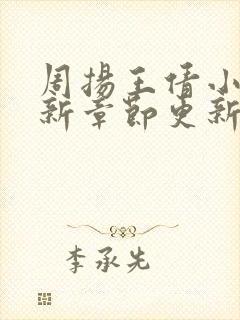 周揚王倩小
新章節更新
李承先